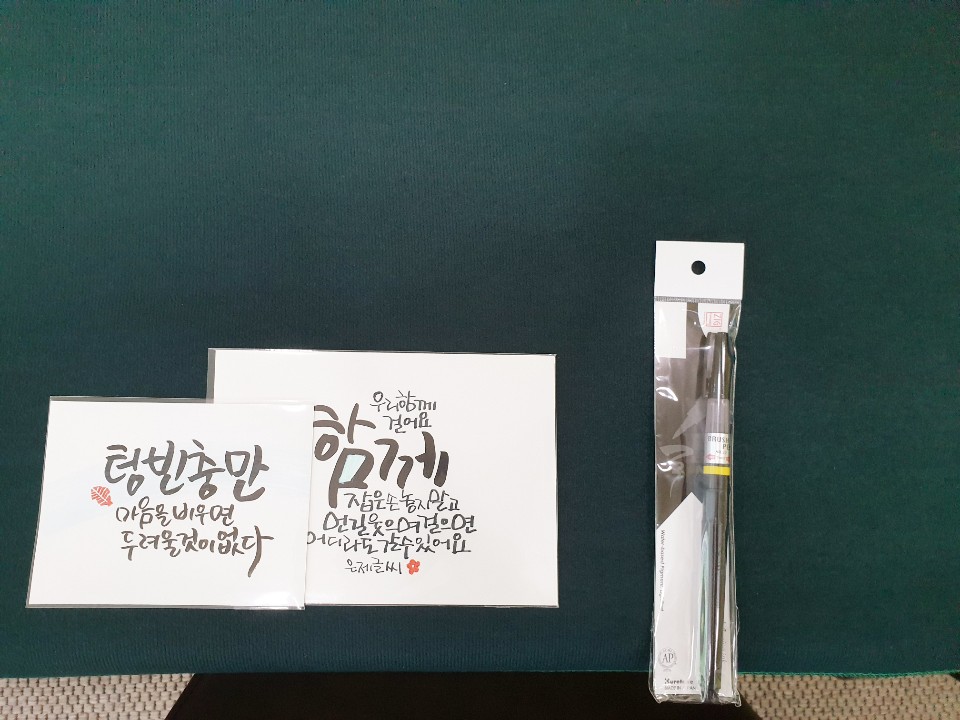 텅빈충만
마음을 비우면
두려울것이없다
우리함께
걸어요
함께
잡은손 놓지말고
먼길 웃으며 걸으면
어디라도 갈수있어요
은제글씨
AP